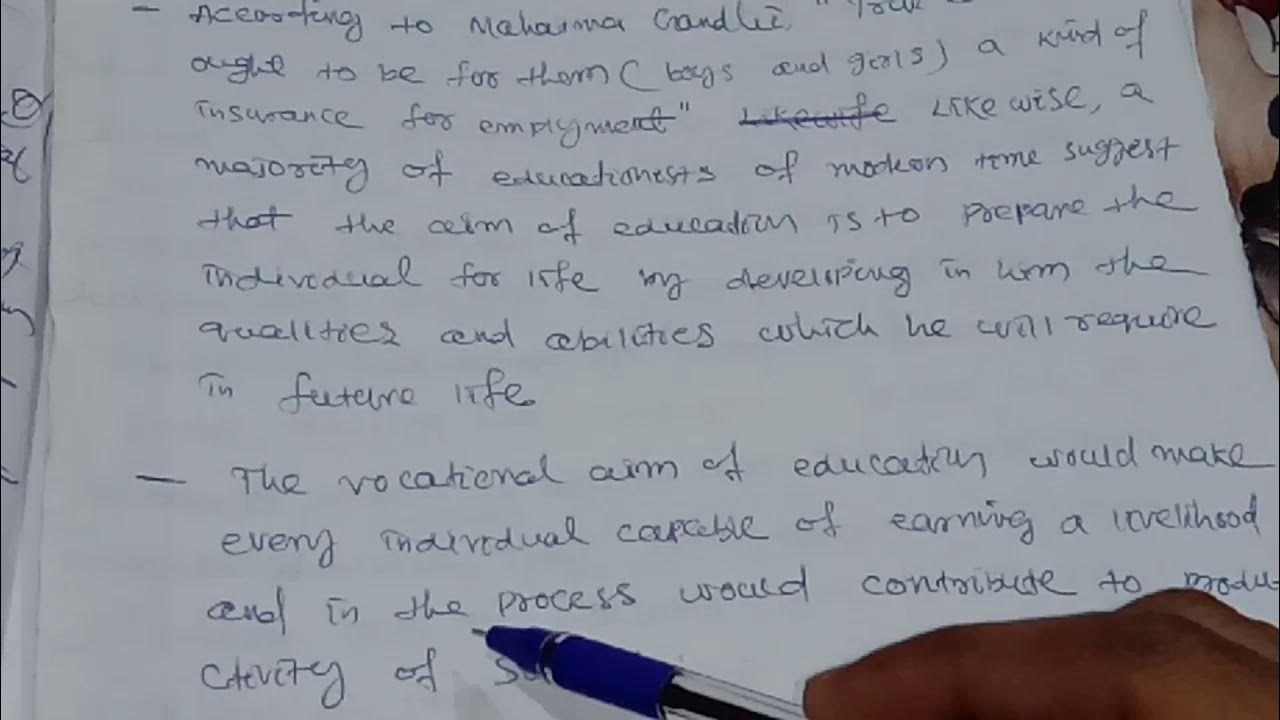 - According to Mahatma Gandhi, "
ought to be for them (boys and girls) a kind of
insurance for emplyment" Likewise Likewise, a
majority of educationests of modern time suggest
that the aim of education is to prepare the
individual for life by developing in him the
qualities and abilities which he will require
in future life
- The vocational aim of education would make
every individual capable of earning a livelihood
and in the process would contribute to produ
ctivity of